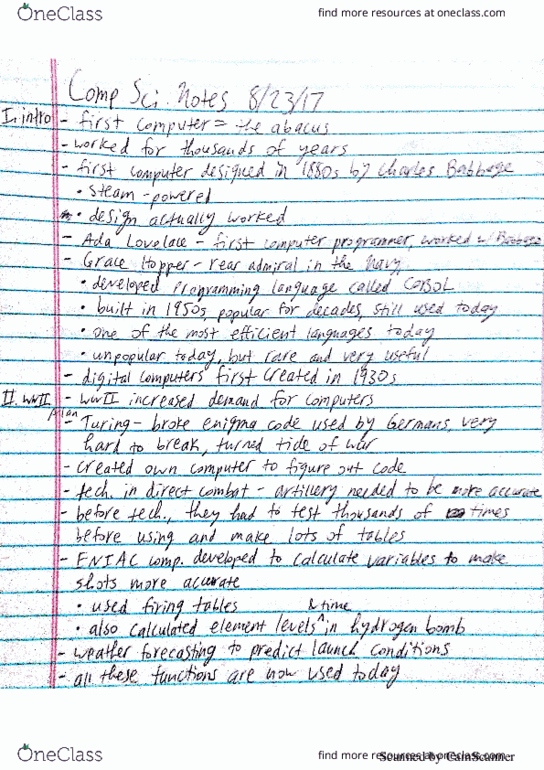 OneClass
find more resources at oneclass.com
Comp Sci Notes 8/23/17
I. intro - first computer = the abacus
- worked for thousands of years
- first computer designed in 1880s by Charles Babbage
• steam-powered
• design actually worked
- Ada Lovelace - first computer programmer, worked w/ Babbage
- Grace Hopper - rear admiral in the navy
• developed programming language called COBOL
• built in 1950s, popular for decades, still used today
• one of the most efficient languages today
• unpopular today, but rare and very useful
- digital computers first created in 1930s
II. WWII - WWII increased demand for computers
- Alan Turing - broke enigma code used by Germans, very
hard to break, turned tide of war
- created own computer to figure out code
- tech. in direct combat - artillery needed to be more accurate
- before tech., they had to test thousands of times
before using and make lots of tables
- ENIAC comp. developed to calculate variables to make
shots more accurate
• used firing tables
• also calculated element levels & time in hydrogen bomb
- weather forecasting to predict launch conditions
- all these functions are now used today
OneClass
find more resources at oneclass.com
Scanned by CamScanner